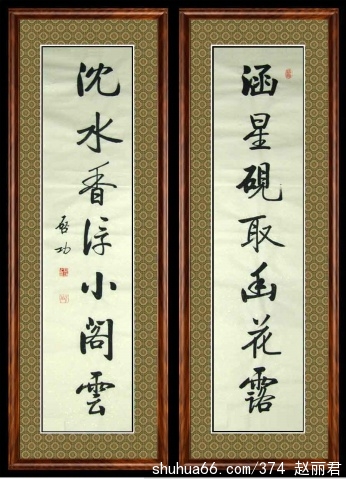 涵星硯取幽花露
沈水香浮小閣雲
啟功
shuhua66.com/374 赵丽君